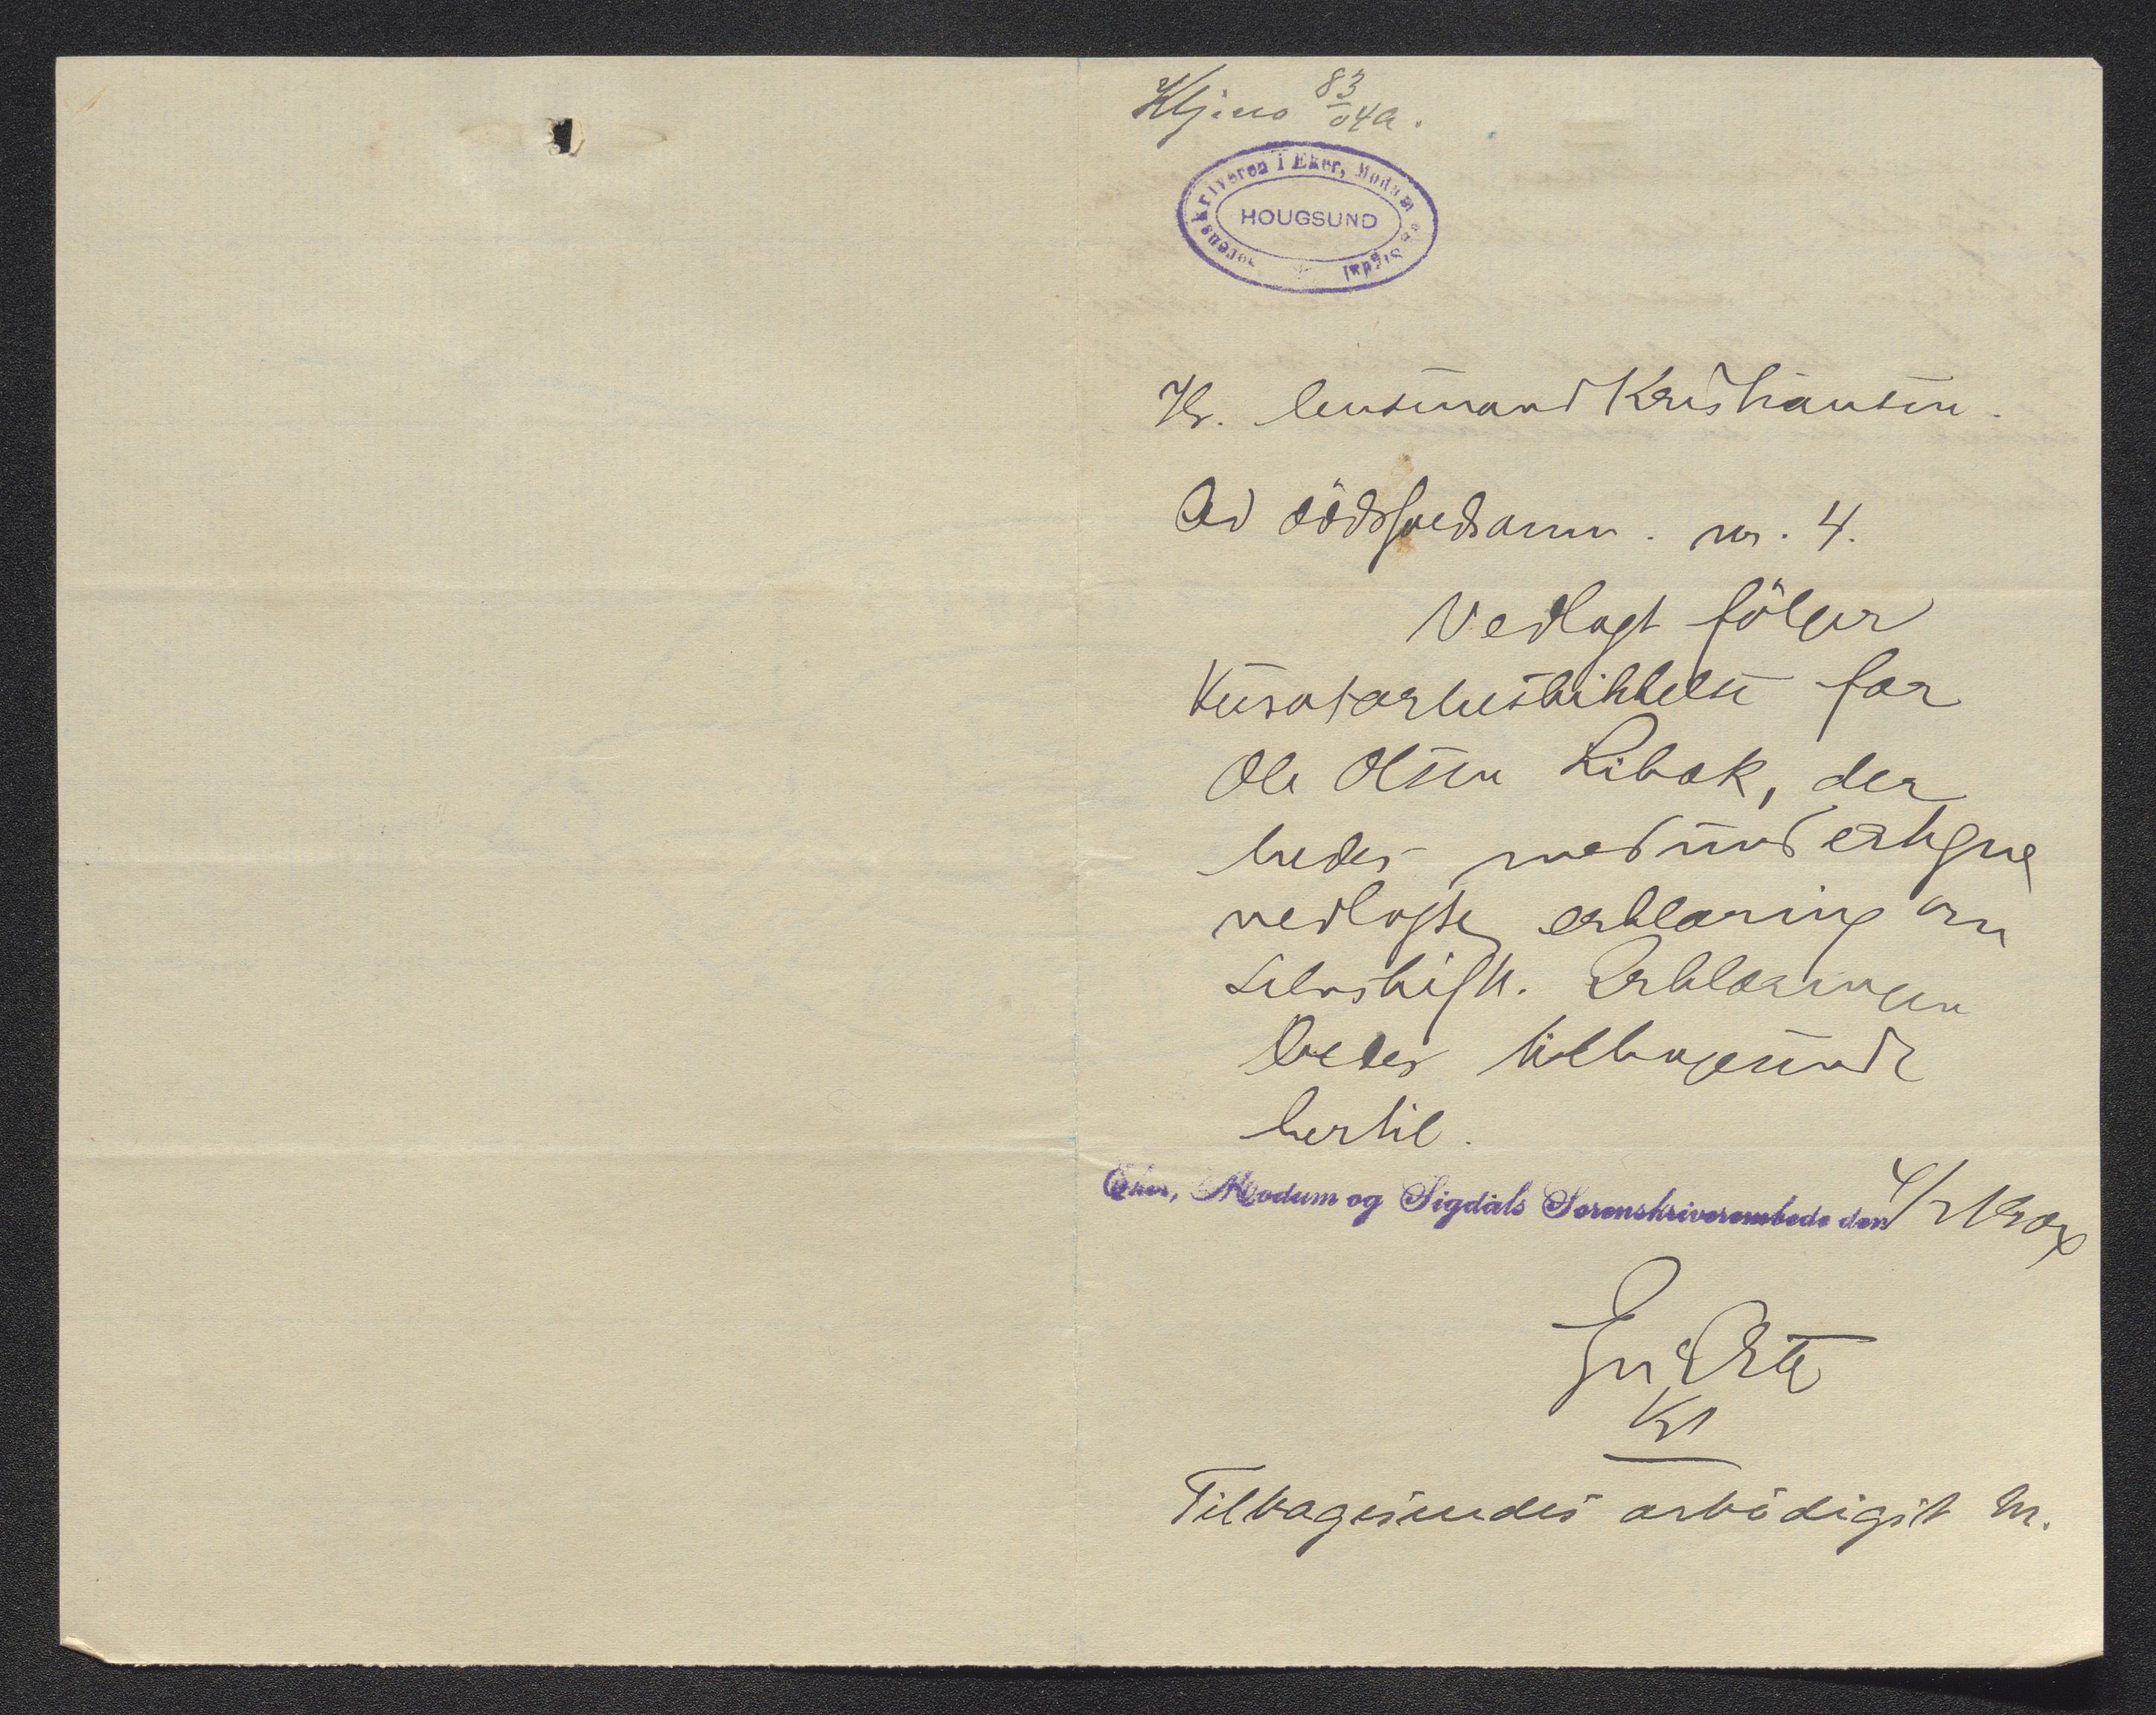 83
Kj. no 04 a.
Sorenskriveren i Eker, Modum og Sigdal
HOUGSUND
Hr. lensmand Kristiansen.
Ad dödsfaldsanm. nr. 4.
Vedlagt fölger
kuratorbeskikkelse for
Ole Olsen Libæk, der
bedes medundertegne
vedlagte erklæring om
selvskifte. Erklæringen
bedes tilbagesendt
hertil.
Eker, Modum og Sigdals Sorenskriverembede den 4/2
Kst
Tilbagesendes ærbödigst hr.